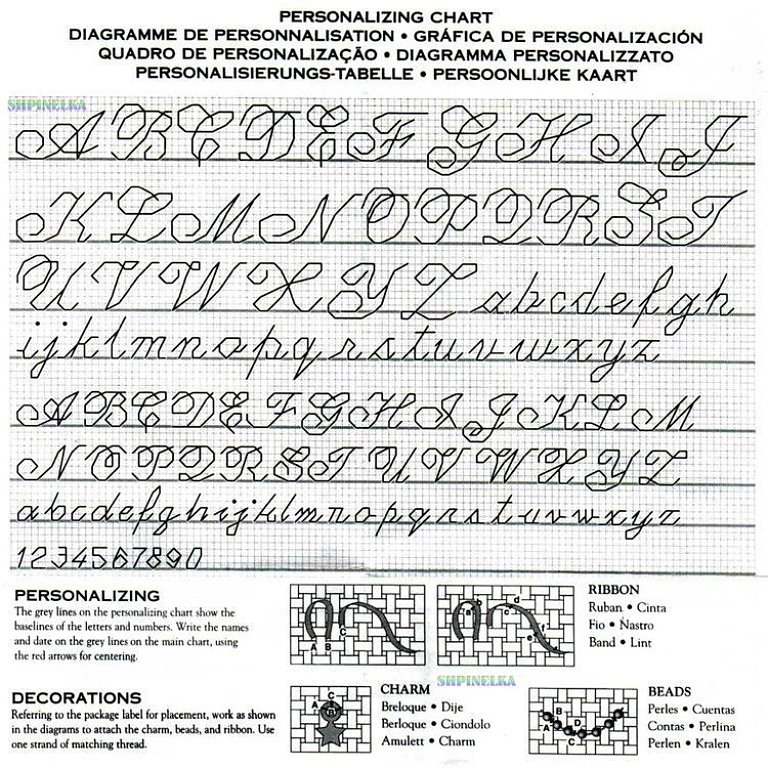 PERSONALIZING CHART
DIAGRAMME DE PERSONNALISATION • GRÁFICA DE PERSONALIZACIÓN
QUADRO DE PERSONALIZAÇÃO • DIAGRAMMA PERSONALIZZATO
PERSONALISIERUNGS-TABELLE • PERSOONLIJKE KAART
SHPINELKA
A B C D E F G H I J
K L M N O P Q R S T
U V W X Y Z a b c d e f g h
i j k l m n o p q r s t u v w x y z
A B C D E F G H I J K L M
N O P Q R S T U V W X Y Z
a b c d e f g h i j k l m n o p q r s t u v w x y z
1 2 3 4 5 6 7 8 9 0
PERSONALIZING
The grey lines on the personalizing chart show the
baselines of the letters and numbers. Write the names
and date on the grey lines on the main chart, using
the red arrows for centering.
A B C
a b c d e f
RIBBON
Ruban • Cinta
Fio • Nastro
Band • Lint
SHPINELKA
DECORATIONS
Referring to the package label for placement, work as shown
in the diagrams to attach the charm, beads, and ribbon. Use
one strand of matching thread.
C
A B
CHARM
Breloque • Dije
Berloque • Ciondolo
Amulett • Charm
B D
A C
BEADS
Perles • Cuentas
Contas • Perlina
Perlen • Kralen